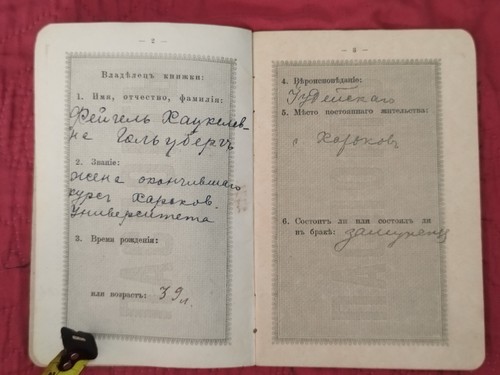 — 2 —
Владѣлецъ книжки:
1. Имя, отчество, фамилія:
Фейгель Хацкелев-
на Гольбергъ
2. Званіе:
жена окончившаго
курсъ Харьков.
Университета
3. Время рожденія:
или возрастъ: 39 л.
— 3 —
4. Вѣроисповѣданіе:
Іудейскаго
5. Мѣсто постояннаго жительства:
г. Харьковъ
6. Состоитъ ли или состоялъ ли
въ бракѣ: замужемъ